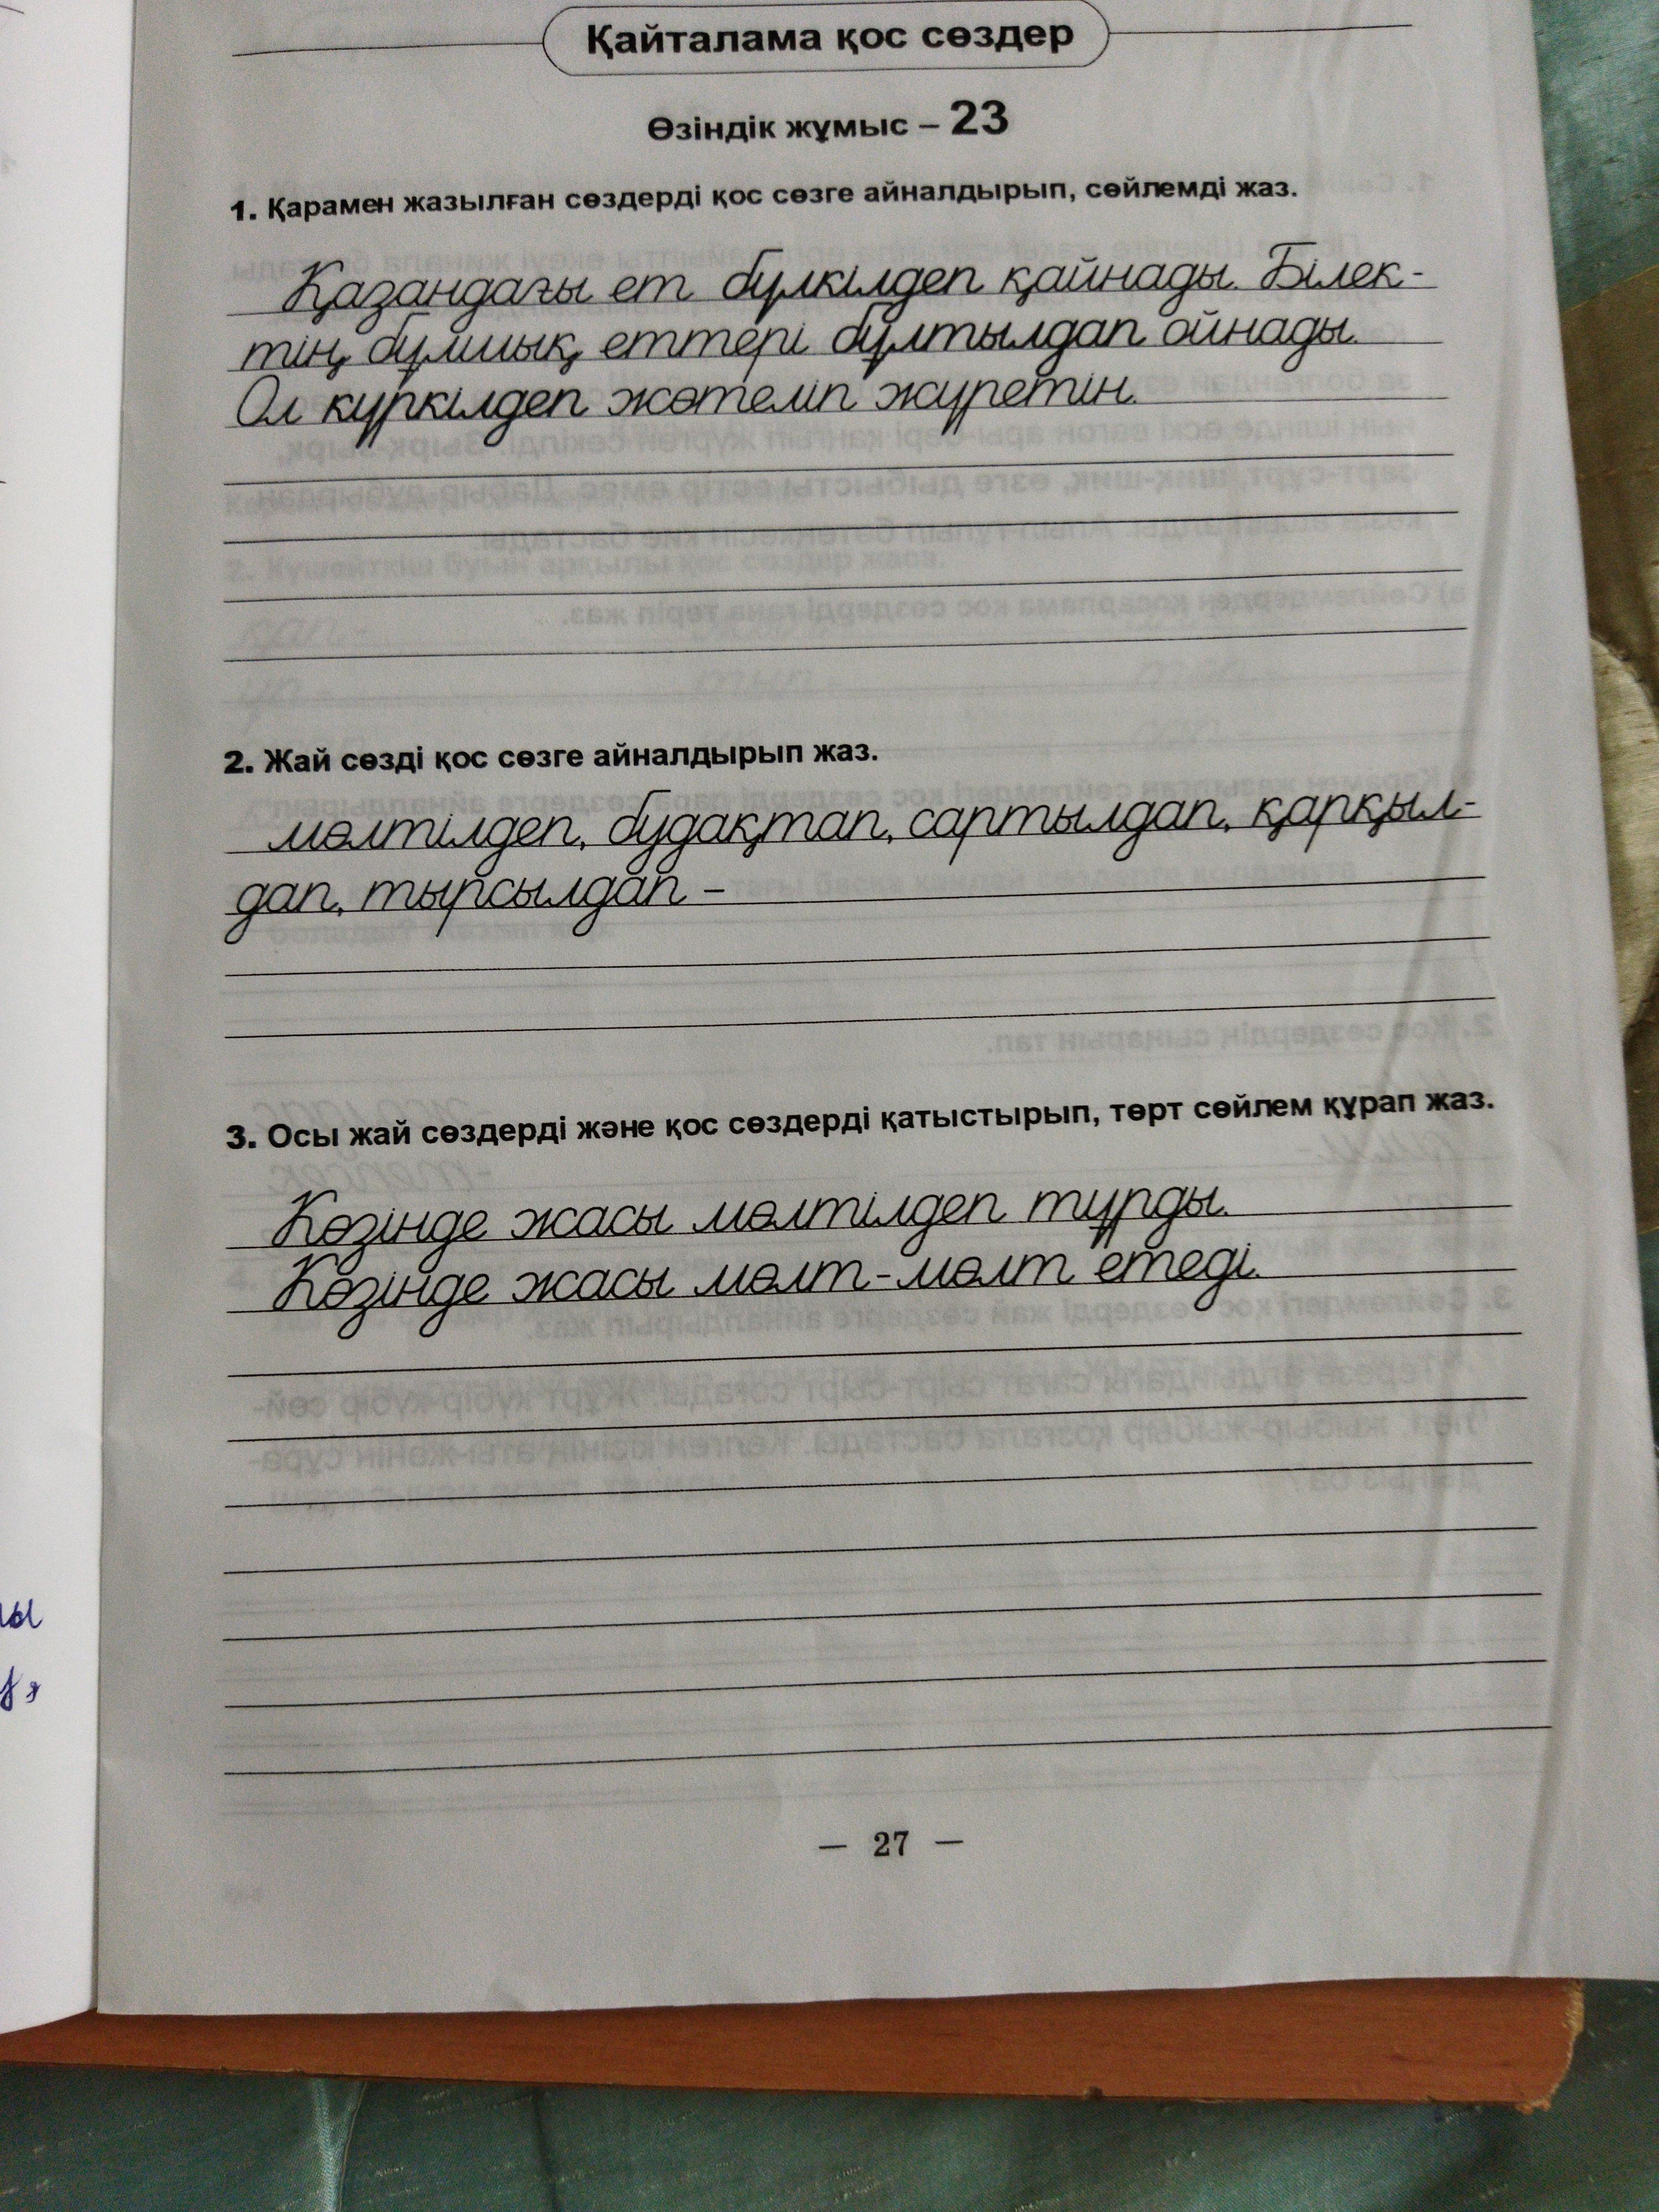 Қайталама қос сөздер
Өзіндік жұмыс – 23
1. Қарамен жазылған сөздерді қос сөзге айналдырып, сөйлемді жаз.
Қазандағы ет бүлкілдеп қайнады. Білек-
тің бұлшық еттері бұлтылдап ойнады.
Ол күркілдеп жөтеліп жүретін.
2. Жай сөзді қос сөзге айналдырып жаз.
мөлтілдеп, будақтап, сартылдап, қарқыл-
дап, тырсылдап –
3. Осы жай сөздерді және қос сөздерді қатыстырып, төрт сөйлем құрап жаз.
Көзінде жасы мөлтілдеп тұрды.
Көзінде жасы мөлт-мөлт етеді.
— 27 —